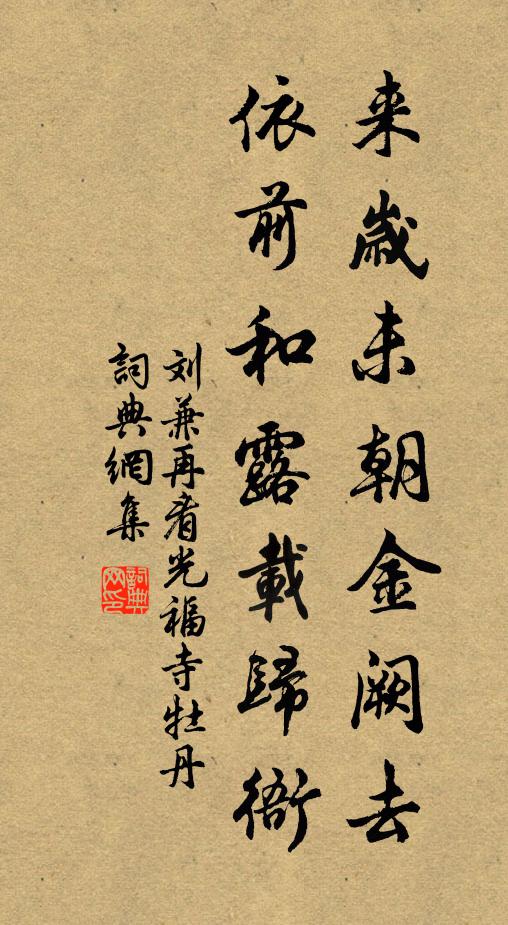 来歳未朝金阙去
依前和露載歸衙
刘兼再看光福寺牡丹
詞典網集
詞典网印